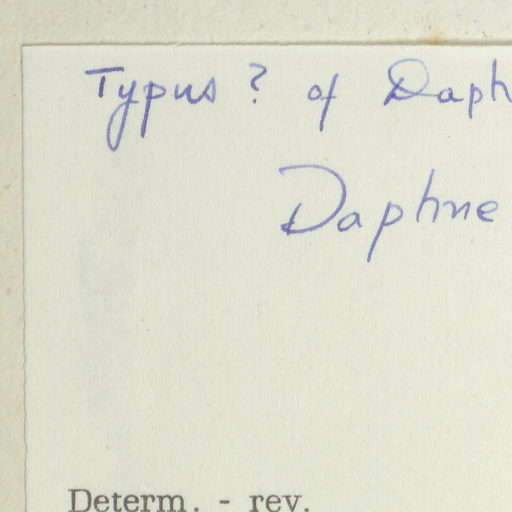 Typus ? of Daph
Daphne
Determ. - rev.